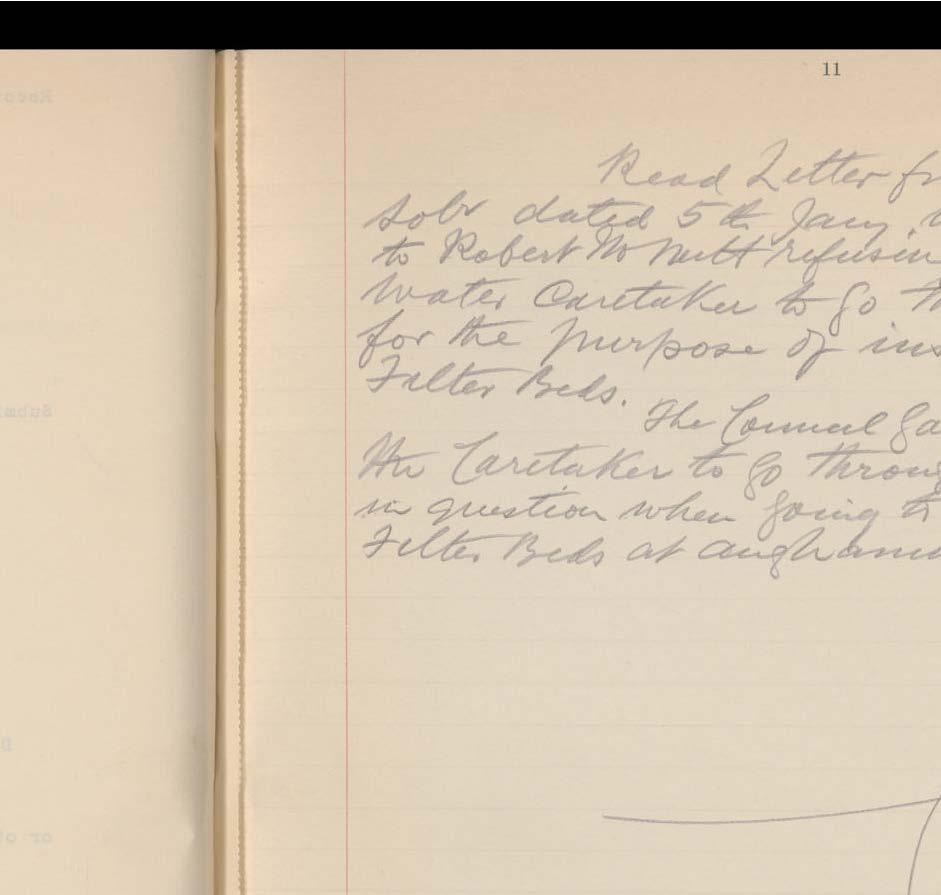 11
Read Letter fr
Solr dated 5th Jany.
to Robert McNutt refusin
Water Caretaker to go th
for the purpose of ins
Filter Beds.
The Council ga
the Caretaker to go throug
in question when going to
Filter Beds at